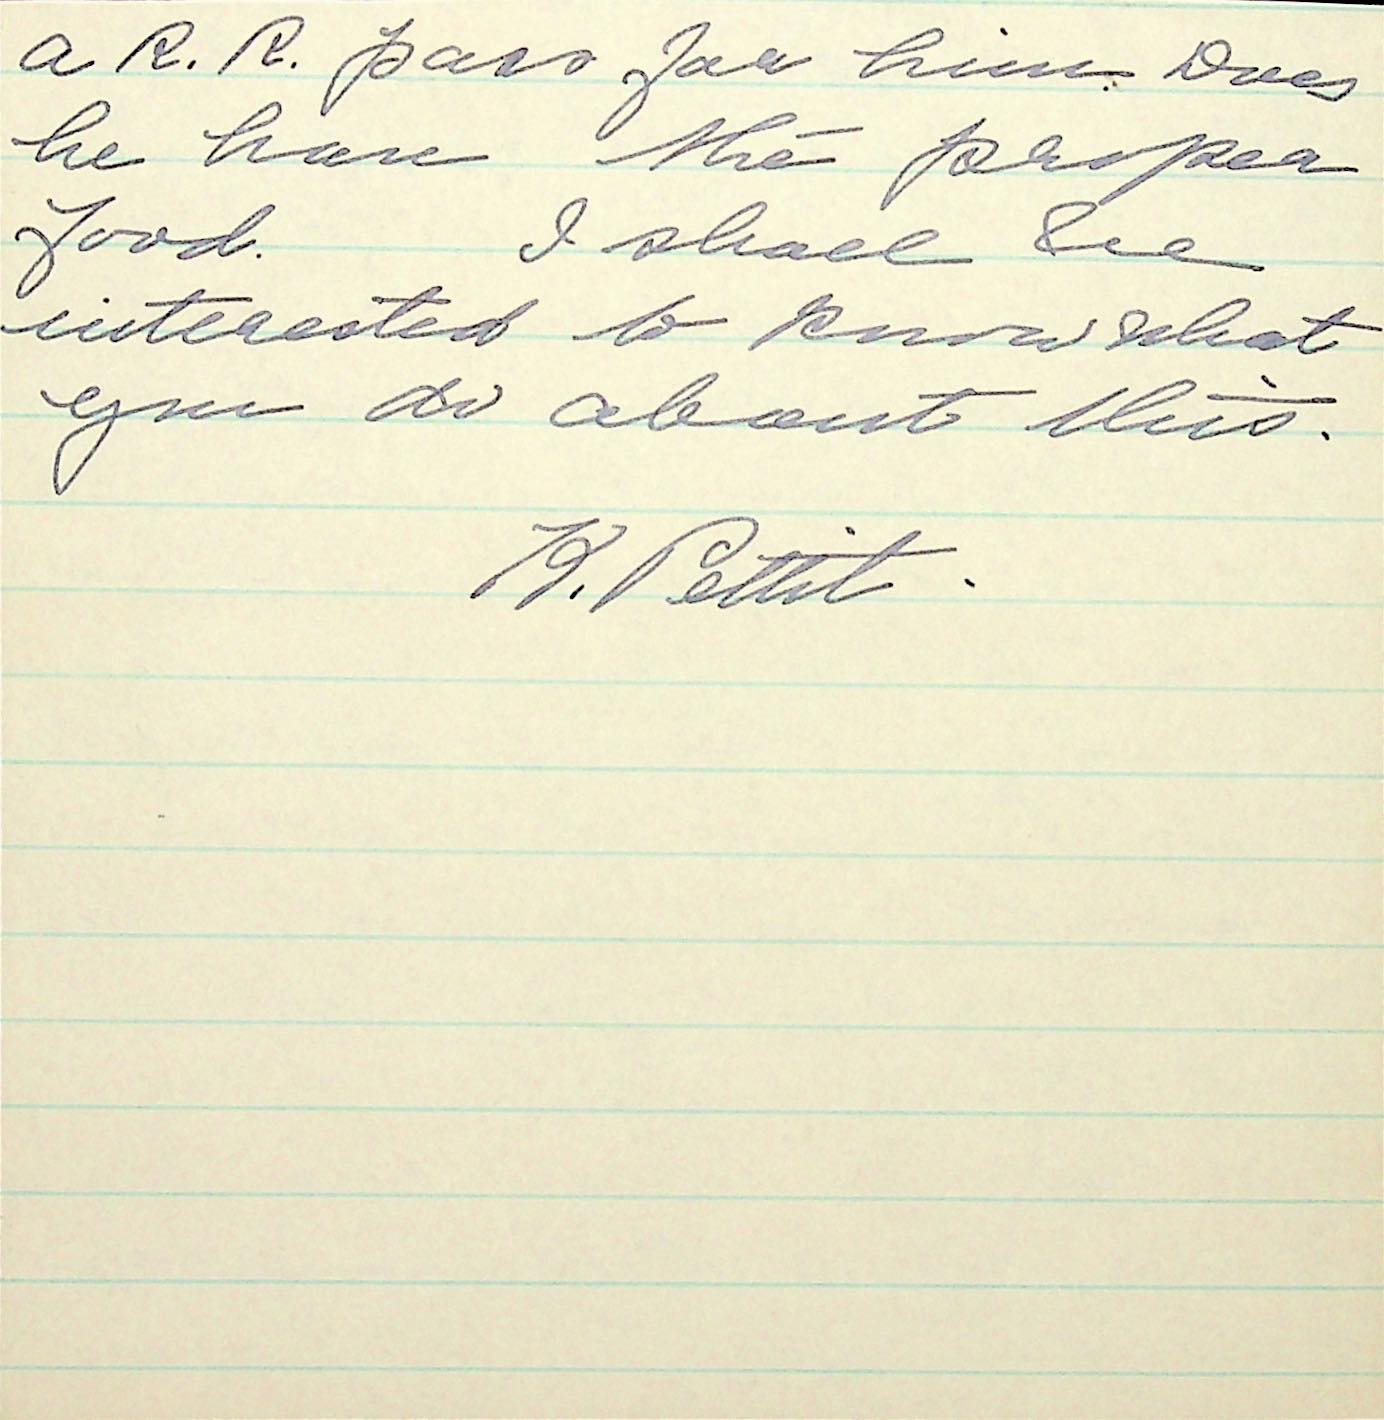 a R. R. pass for him. Does
he have the proper
food. I shall be
interested to know what
you do about this.
K. Pettit.